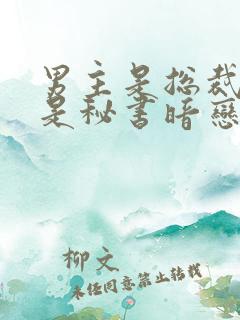 男主是总裁
是秘书暗戀
柳文
未经同意禁止转载